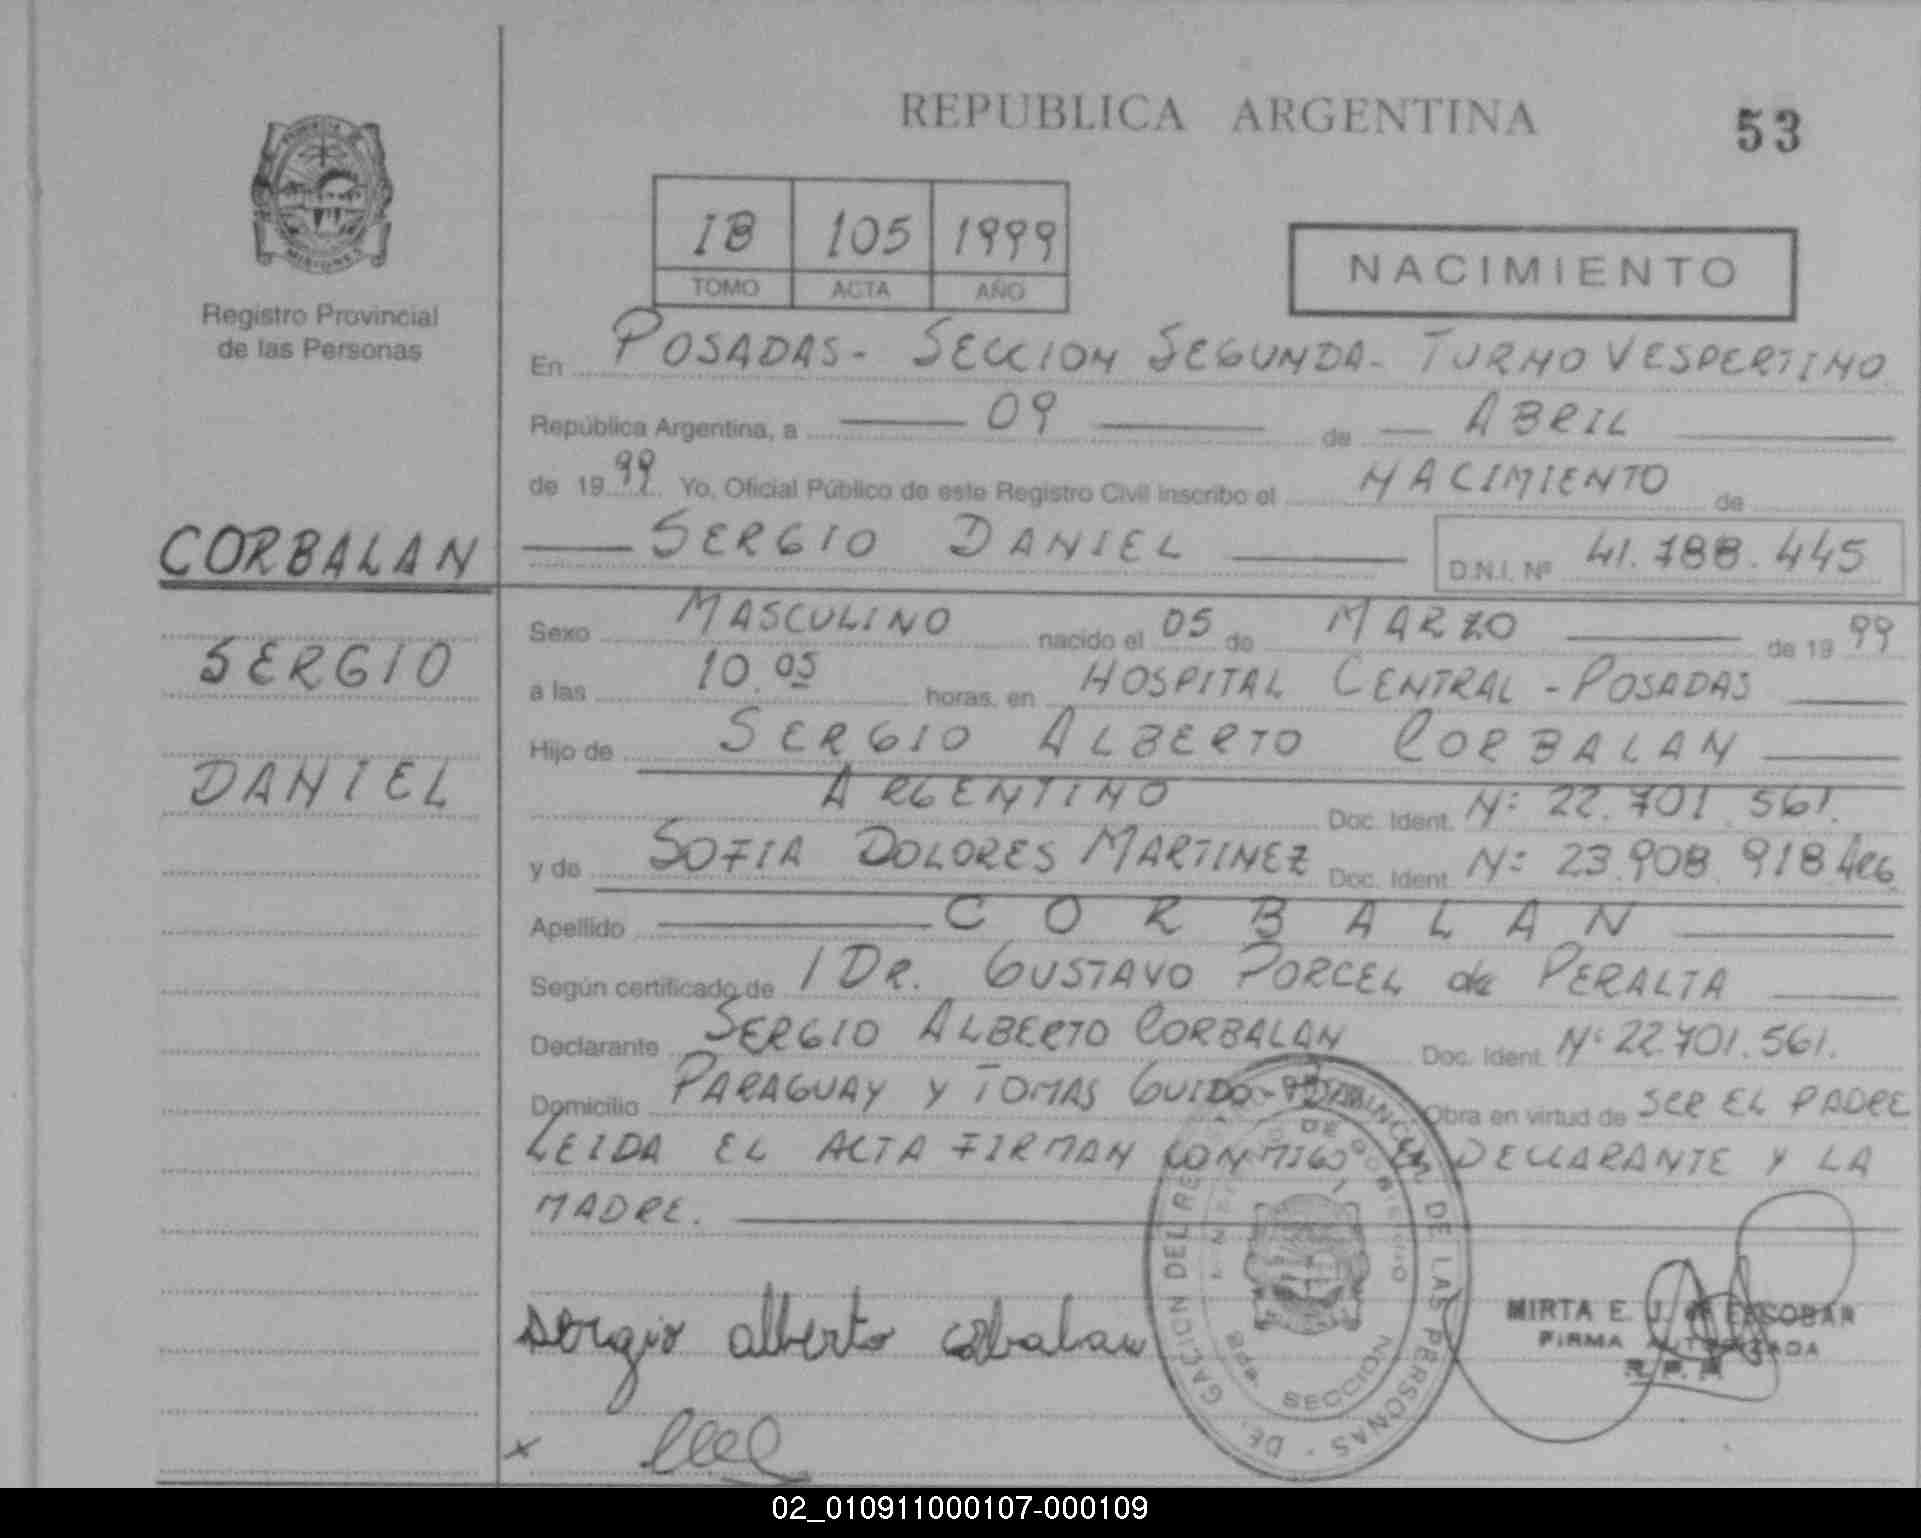 REPUBLICA ARGENTINA
53
MISIONES
Registro Provincial
de las Personas
IB 105 1999
TOMO ACTA AÑO
NACIMIENTO
En POSADAS- SECCION SEGUNDA- TURNO VESPERTINO
República Argentina, a 09 de ABRIL
de 1999 Yo, Oficial Público de este Registro Civil inscribo el NACIMIENTO de
CORBALAN
SERGIO
DANIEL
SERGIO DANIEL D.N.I. Nº 41.788.445
Sexo MASCULINO nacido el 05 de MARZO de 1999
a las 10.05 horas, en HOSPITAL CENTRAL - POSADAS
Hijo de SERGIO ALBERTO CORBALAN
ARGENTINO Doc. Ident. Nº 22.701.561.
y de SOFIA DOLORES MARTINEZ Doc. Ident. Nº 23.908.918 ARG
Apellido CORBALAN
Según certificado de 1 DR. GUSTAVO PORCEL de PERALTA
Declarante SERGIO ALBERTO CORBALAN Doc. Ident. Nº 22.701.561.
Domicilio PARAGUAY Y TOMAS GUIDO- Obra en virtud de SER EL PADRE
LEIDA EL ACTA FIRMAN CONMIGO EL DECLARANTE Y LA
MADRE.
sergio alberto corbalan
MIRTA E. J. de ESCOBAR
FIRMA AUTORIZADA
R.P.P.
DE LAS PERSONAS
SECCION
x
02_010911000107-000109